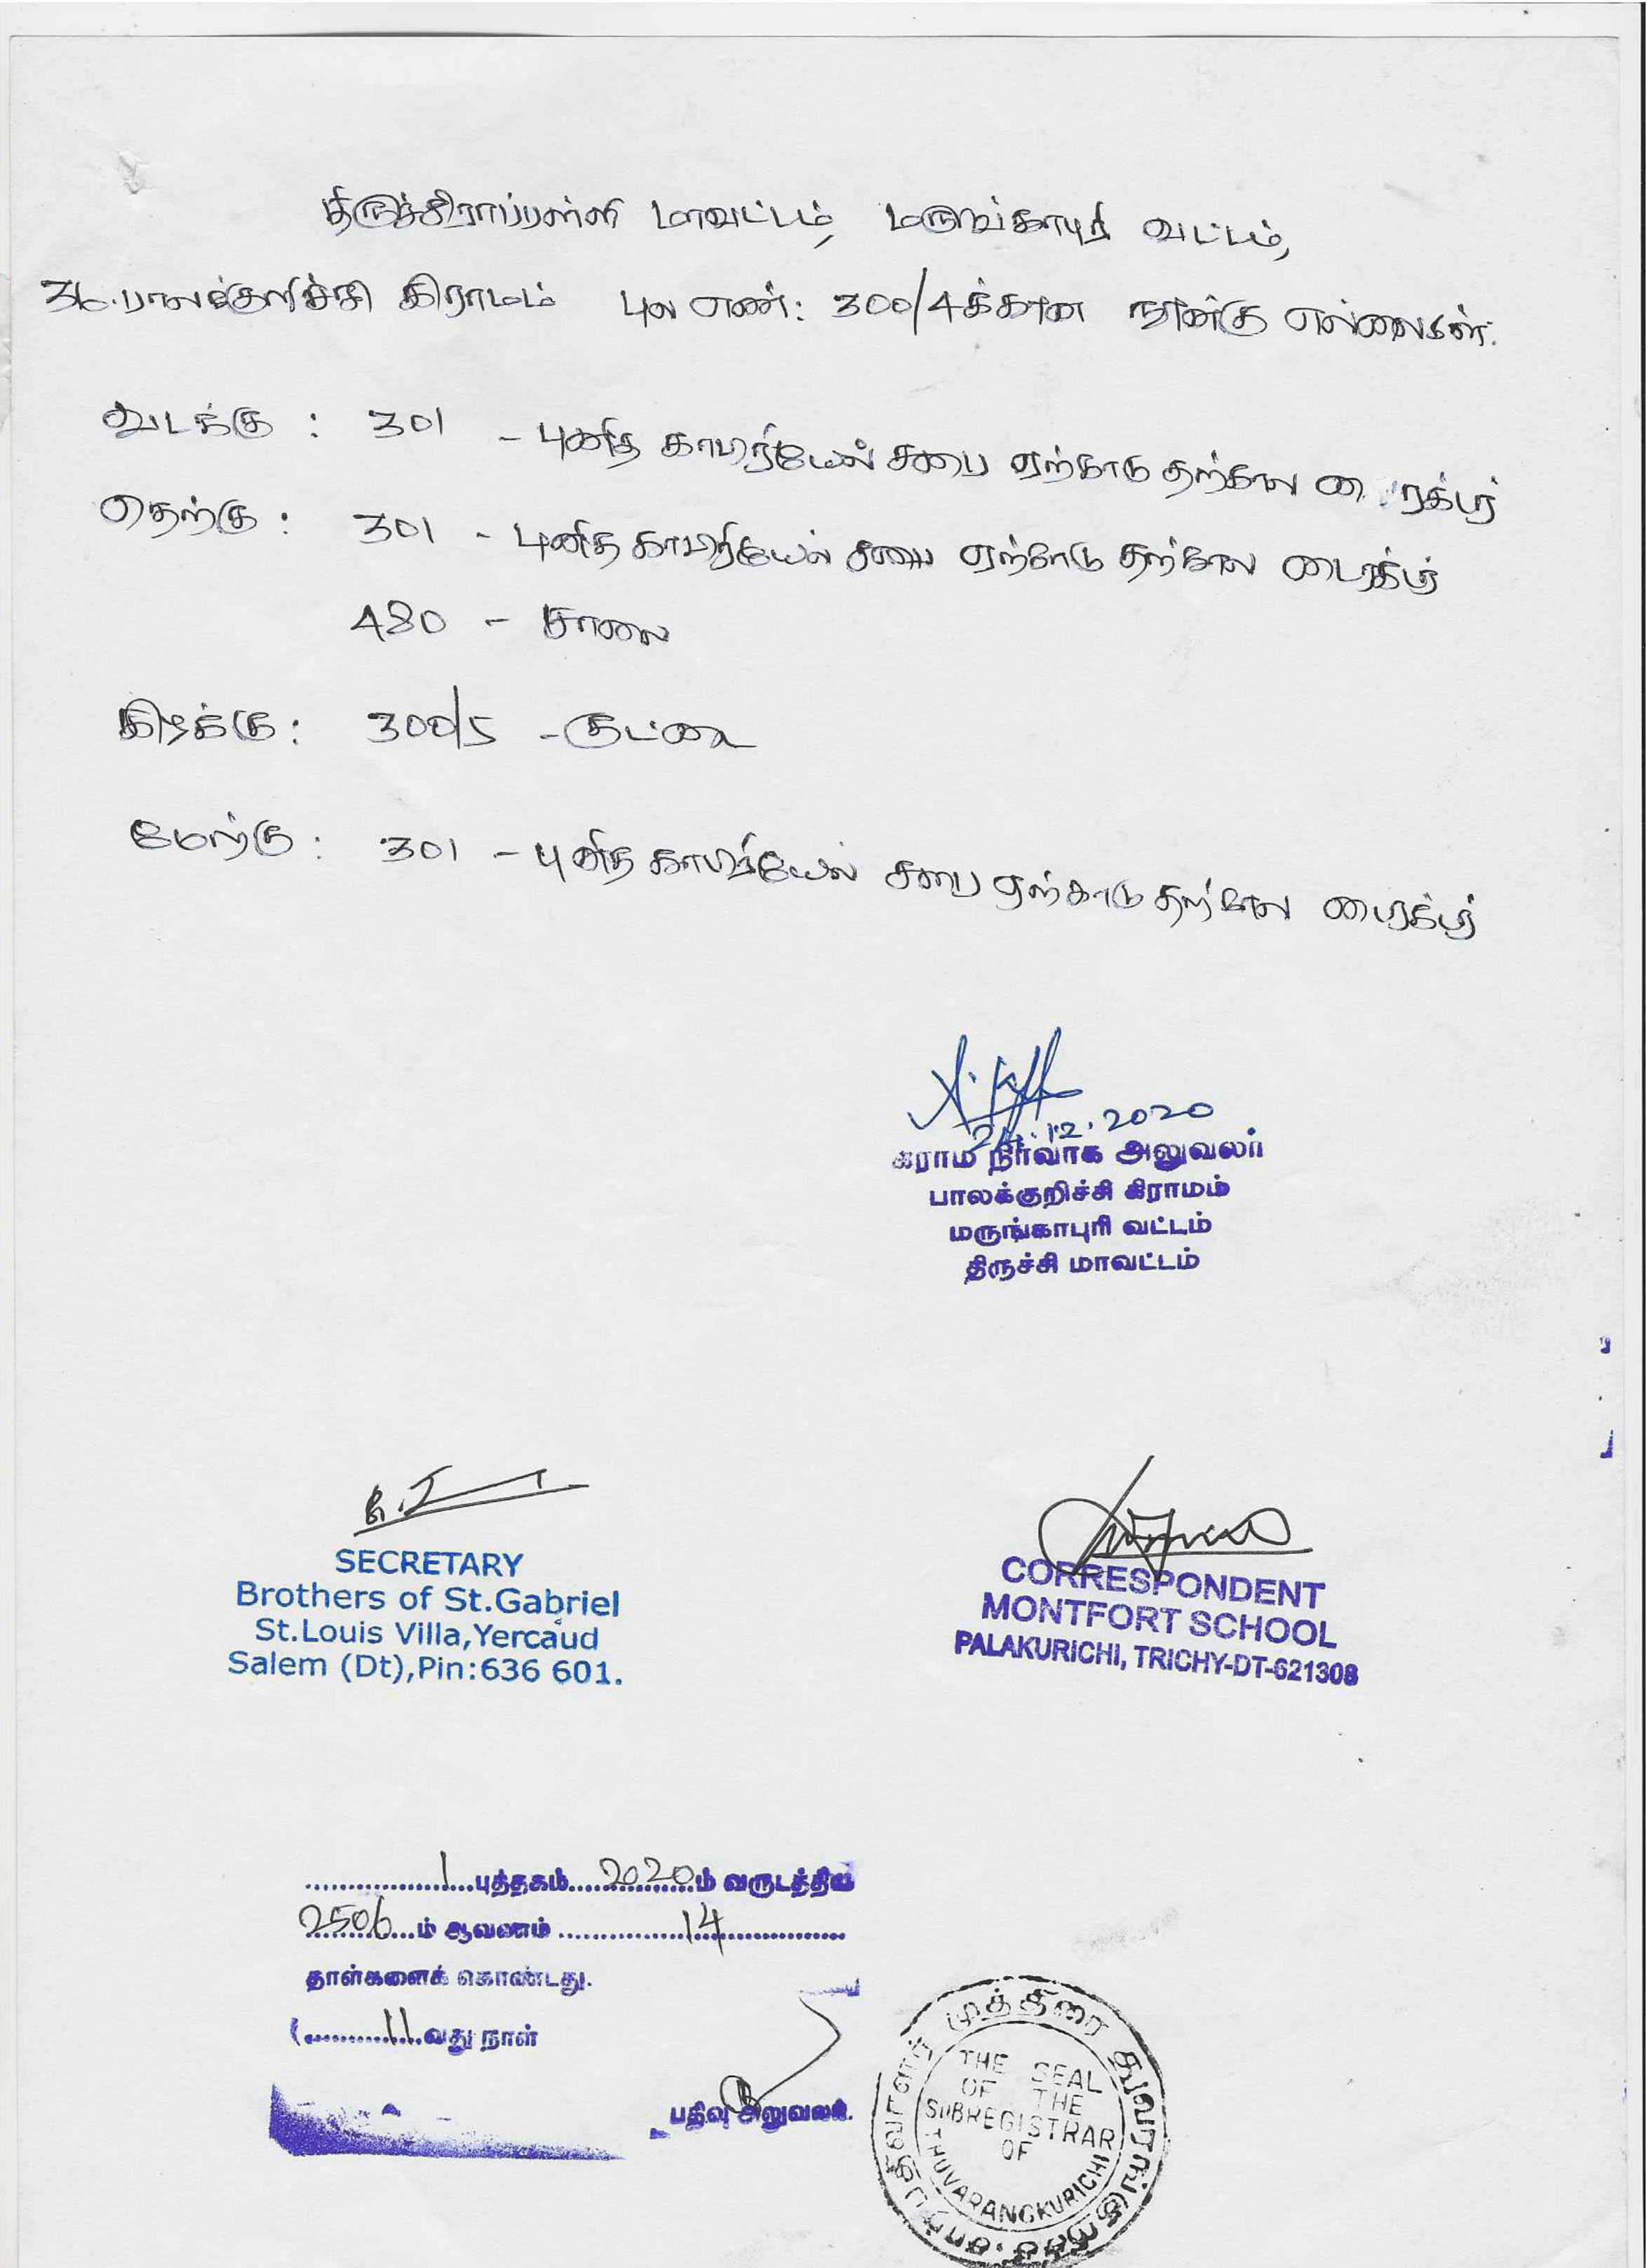 திருச்சிராப்பள்ளி மாவட்டம், மருங்காபுரி வட்டம்,
36.பாலக்குறிச்சி கிராமம் புல எண்: 300/4க்கான நான்கு எல்லைகள்:
வடக்கு : 301 - புனித காபிரியேல் சபை ஏற்காடு தற்கால டைரக்டர்
தெற்கு : 301 - புனித காபிரியேல் சபை ஏற்காடு தற்கால டைரக்டர்
480 - சாலை
கிழக்கு : 300/5 - குட்டை
மேற்கு : 301 - புனித காபிரியேல் சபை ஏற்காடு தற்கால டைரக்டர்
.12.2020
கிராம நிர்வாக அலுவலர்
பாலக்குறிச்சி கிராமம்
மருங்காபுரி வட்டம்
திருச்சி மாவட்டம்
SECRETARY
Brothers of St.Gabriel
St.Louis Villa,Yercaud
Salem (Dt),Pin:636 601.
CORRESPONDENT
MONTFORT SCHOOL
PALAKURICHI, TRICHY-DT-621308
1 புத்தகம் 2020 ம் வருடத்திய
2506 ம் ஆவணம் 14
தாள்களைக் கொண்டது.
11 வது நாள்
பதிவு அலுவலர்.
சார்பதிவாளர் முத்திரை துவரங்குறிச்சி
THE SEAL
OF THE
SUBREGISTRAR
OF
THUVARANGKURICHI